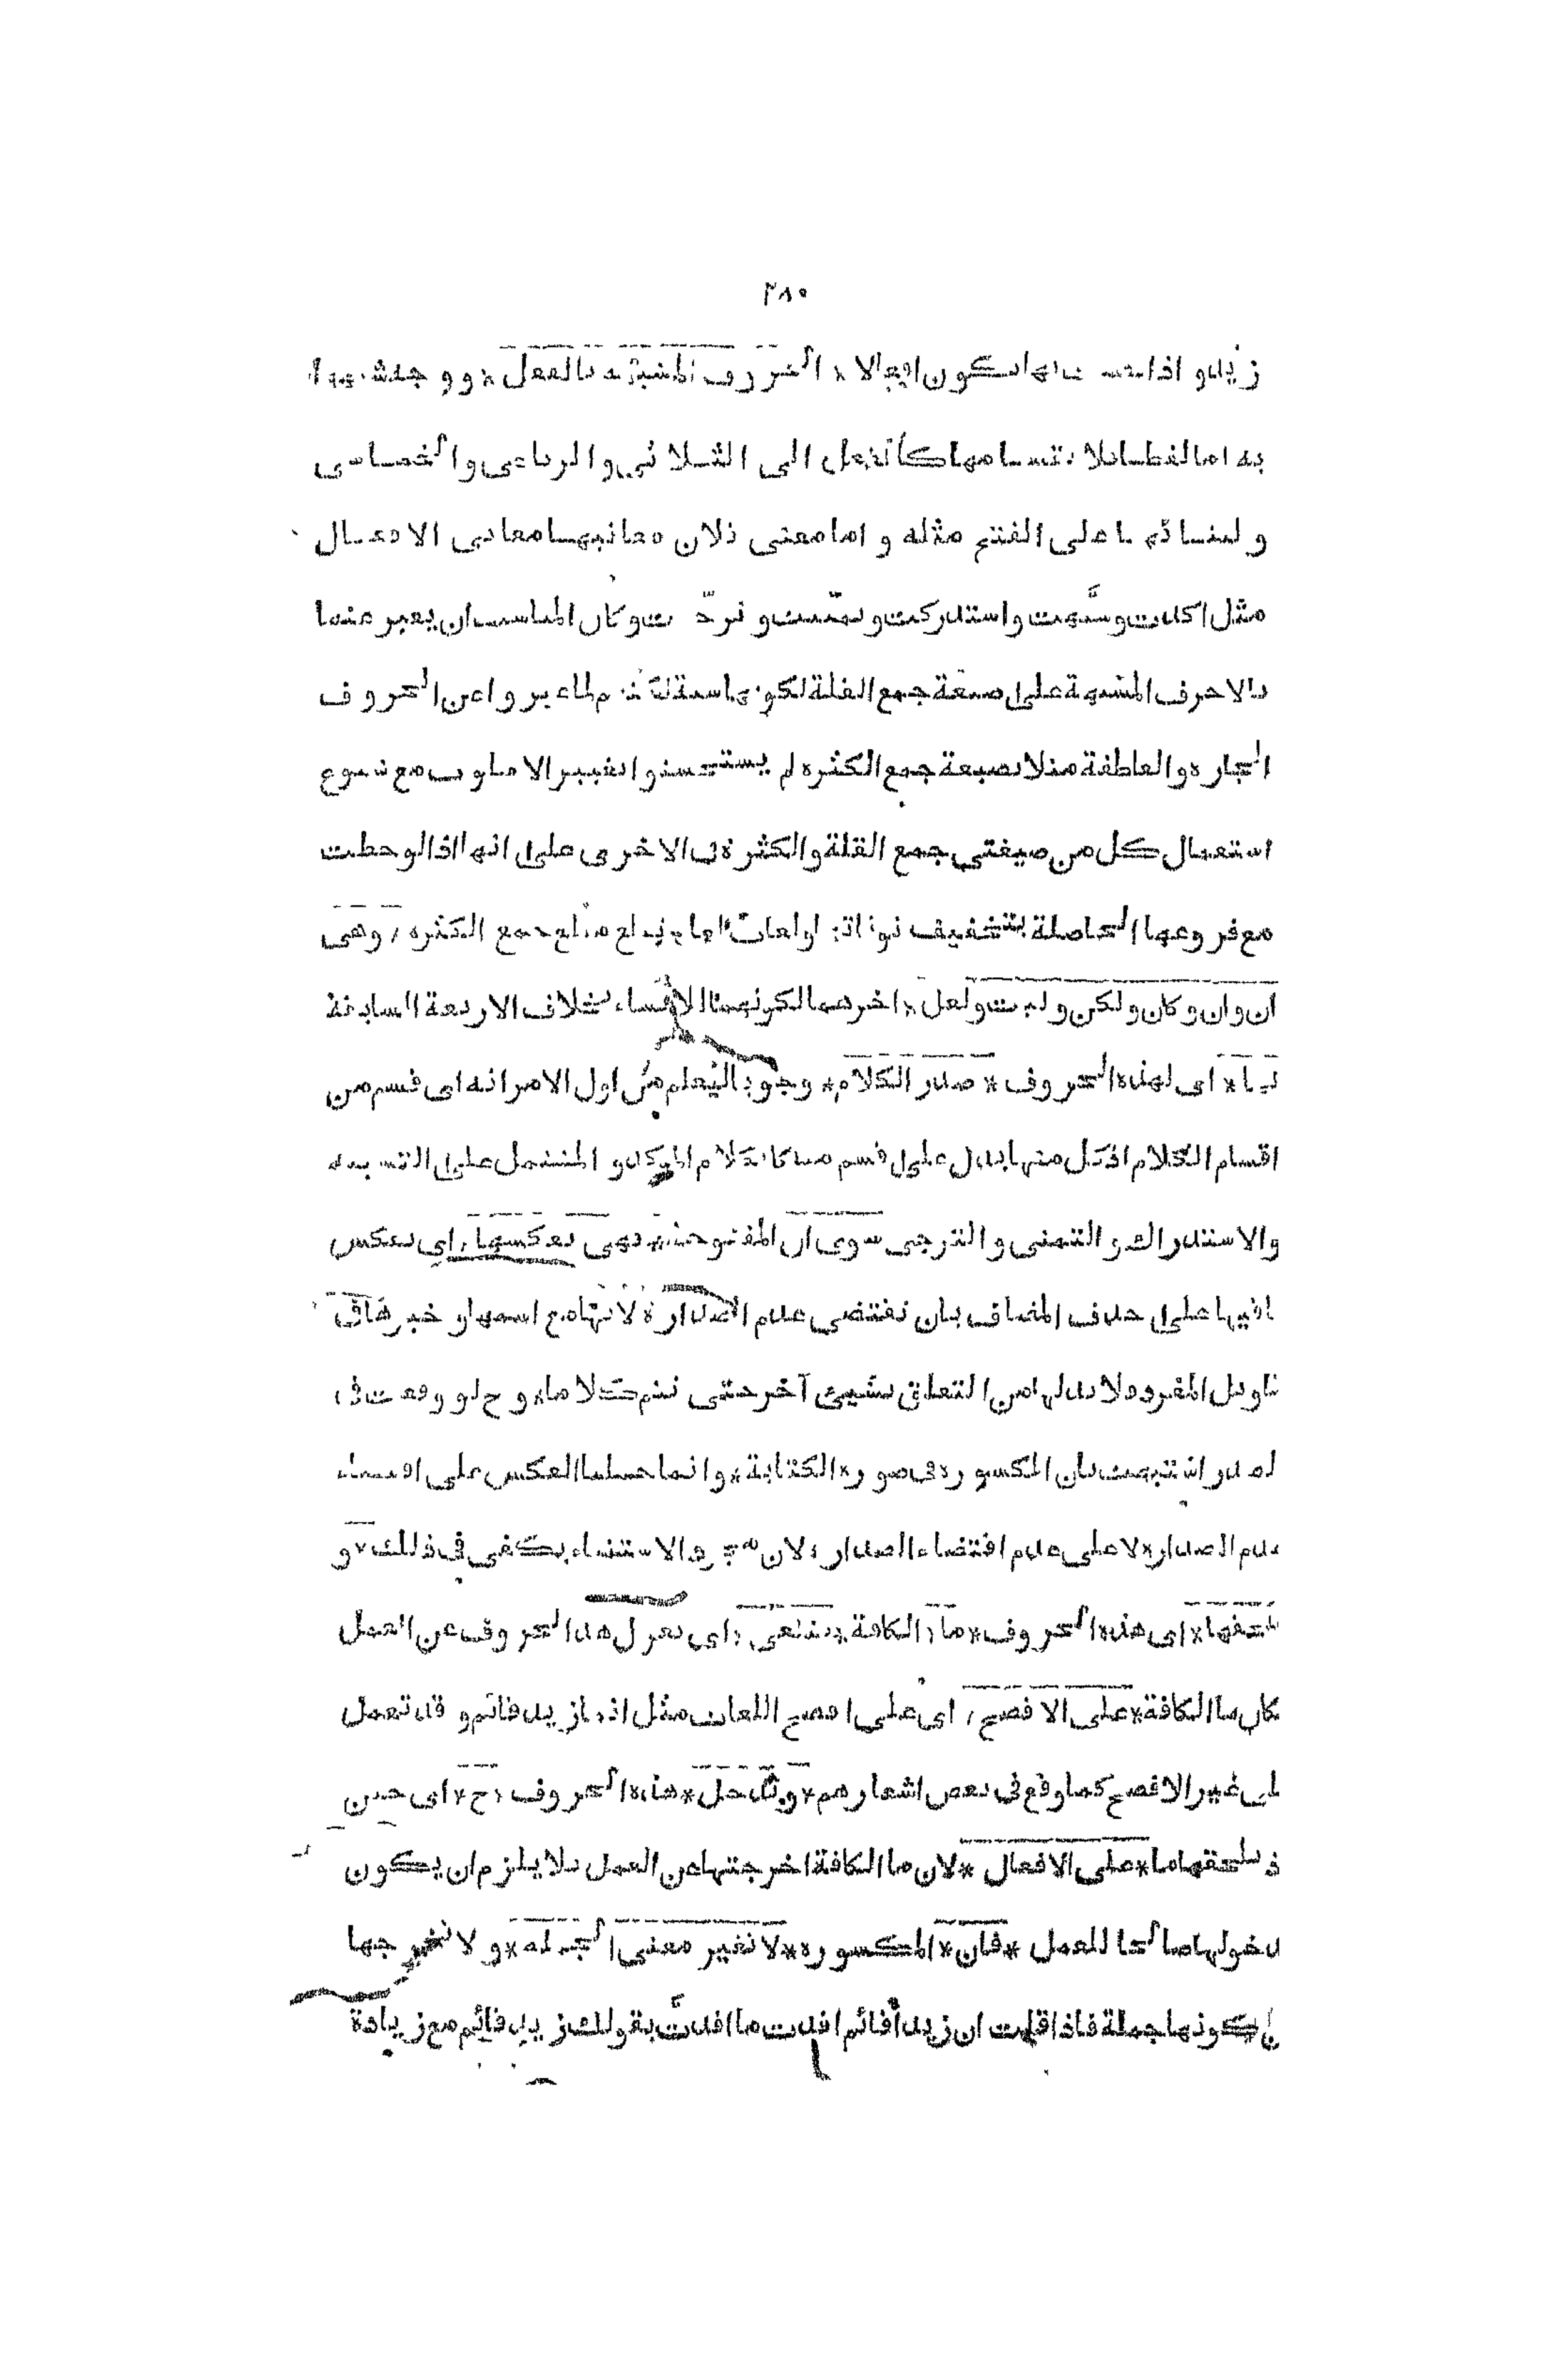 ٣٨٠
زيد و اذا نصبت بها تكون افعالا * الحروف المشبهة بالفعل * ووجه شبهها
به اما لفظا فلانقسامها كالفعل الى الثلاثي والرباعى والخماسى
ولبنائها على الفتح مثله و اما معنى فلان معانيها معانى الافعال
مثل اكدت وشبهت واستدركت وتمنّيت وترجّيت وكان المناسب ان يعبر عنها
بالاحرف المشبهة على صيغة جمع القلة لكونها ستة لكنهم لما عبروا عن الحروف
الجاره والعاطفة مثلا بصيغة جمع الكثره لم يستحسنوا تغيير الاسلوب مع شيوع
استعمال كل من صيغتى جمع القلة والكثرة فى الاخرى على انها اذا لوحظت
مع فروعها الحاصلة بتخفيف نوناتها و لغات لعل يبلغ مبلغ جمع الكثره * وهى
ان وان وكان ولكن وليت ولعل * اخرهما لكونهما للانشاء بخلاف الاربعة السابقة
لها * اى لهذه الحروف * صدر الكلام * وجوبا ليعلم من اول الامر انه اى قسم من
اقسام الكلام اذ كل منها يدل على قسم منه كالكلام المؤكد و المشتمل على التشبيه
والاستدراك و التمنى و الترجى سوى ان المفتوحة * فهى بعكسها * اي بعكس
باقيها على حذف المضاف بان تقتضى عدم الصدارة لانها مع اسمها و خبرها فى
تاويل المفرد فلا بد لها من التعلق بشيئ آخر حتى تتم كلاما * و ح لو وقعت فى
لصدر اشتبهت بان المكسوره فى صورة الكتابة * و انما حملنا العكس على اقتضاء
عدم الصدارة لا على عدم اقتضاء الصدارة لان مجرد الاستثناء يكفى فى ذلك * و
تلحقها * اى هذه الحروف * ما * الكافة * فتلغى * اى تعزل هذه الحروف عن العمل
لكان ما الكافة * على الافصح * اى على افصح اللغات مثل انما زيد قائم و قد تعمل
على غير الافصح كما وقع فى بعض اشعارهم * وتدخل * هذه الحروف * ح * اى حين
اذ تلحقها ما * على الافعال * لان ما الكافة اخرجتها عن العمل فلا يلزم ان يكون
مدخولها صالحا للعمل * فان * المكسوره * لا تغير معنى الجمله * و لا تخرجها
عن كونها جملة فاذا قلت ان زيدا قائم افدت ما افدت بقولك زيد قائم مع زيادة